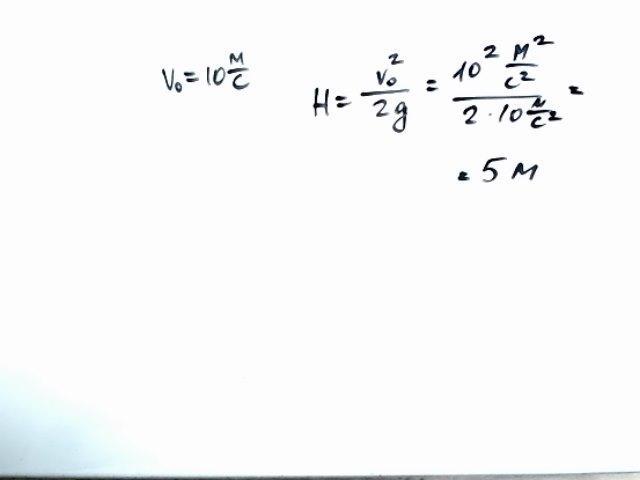 V₀ = 10 М/С
H = v₀²/2g = 10² М²/С² / 2 · 10 М/С² =
= 5 М